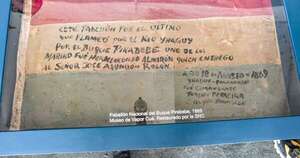 ESTE PABELLON FUE EL ULTIMO
QUE FLAMEO POR EL RIO YHAGUY
POR EL BUQUE PIRABEBE UNO DE LOS
MARINO FUE HERMENEGILDO ALMIRON QUIEN ENTREGO
AL SEÑOR JOSE ASUNCION ROLON.
18 de AGOSTO de 1869
YHAGUY-
COMANDANTE
Pabellón Nacional del Buque Pirabebe, 1869
Museo de Vapor Cué. Restaurado por la SNC